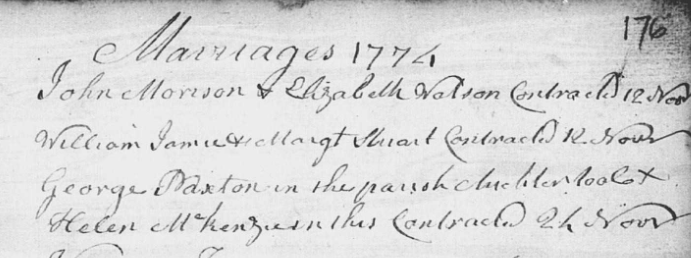 176
Marriages 1774
John Morison & Elizabeth Watson Contracted 12 Novr
William Jamie & Margt Stuart Contracted 12 Novr
George Paxton in the parish &
Helen McKenzie in this Contracted 24 Novr